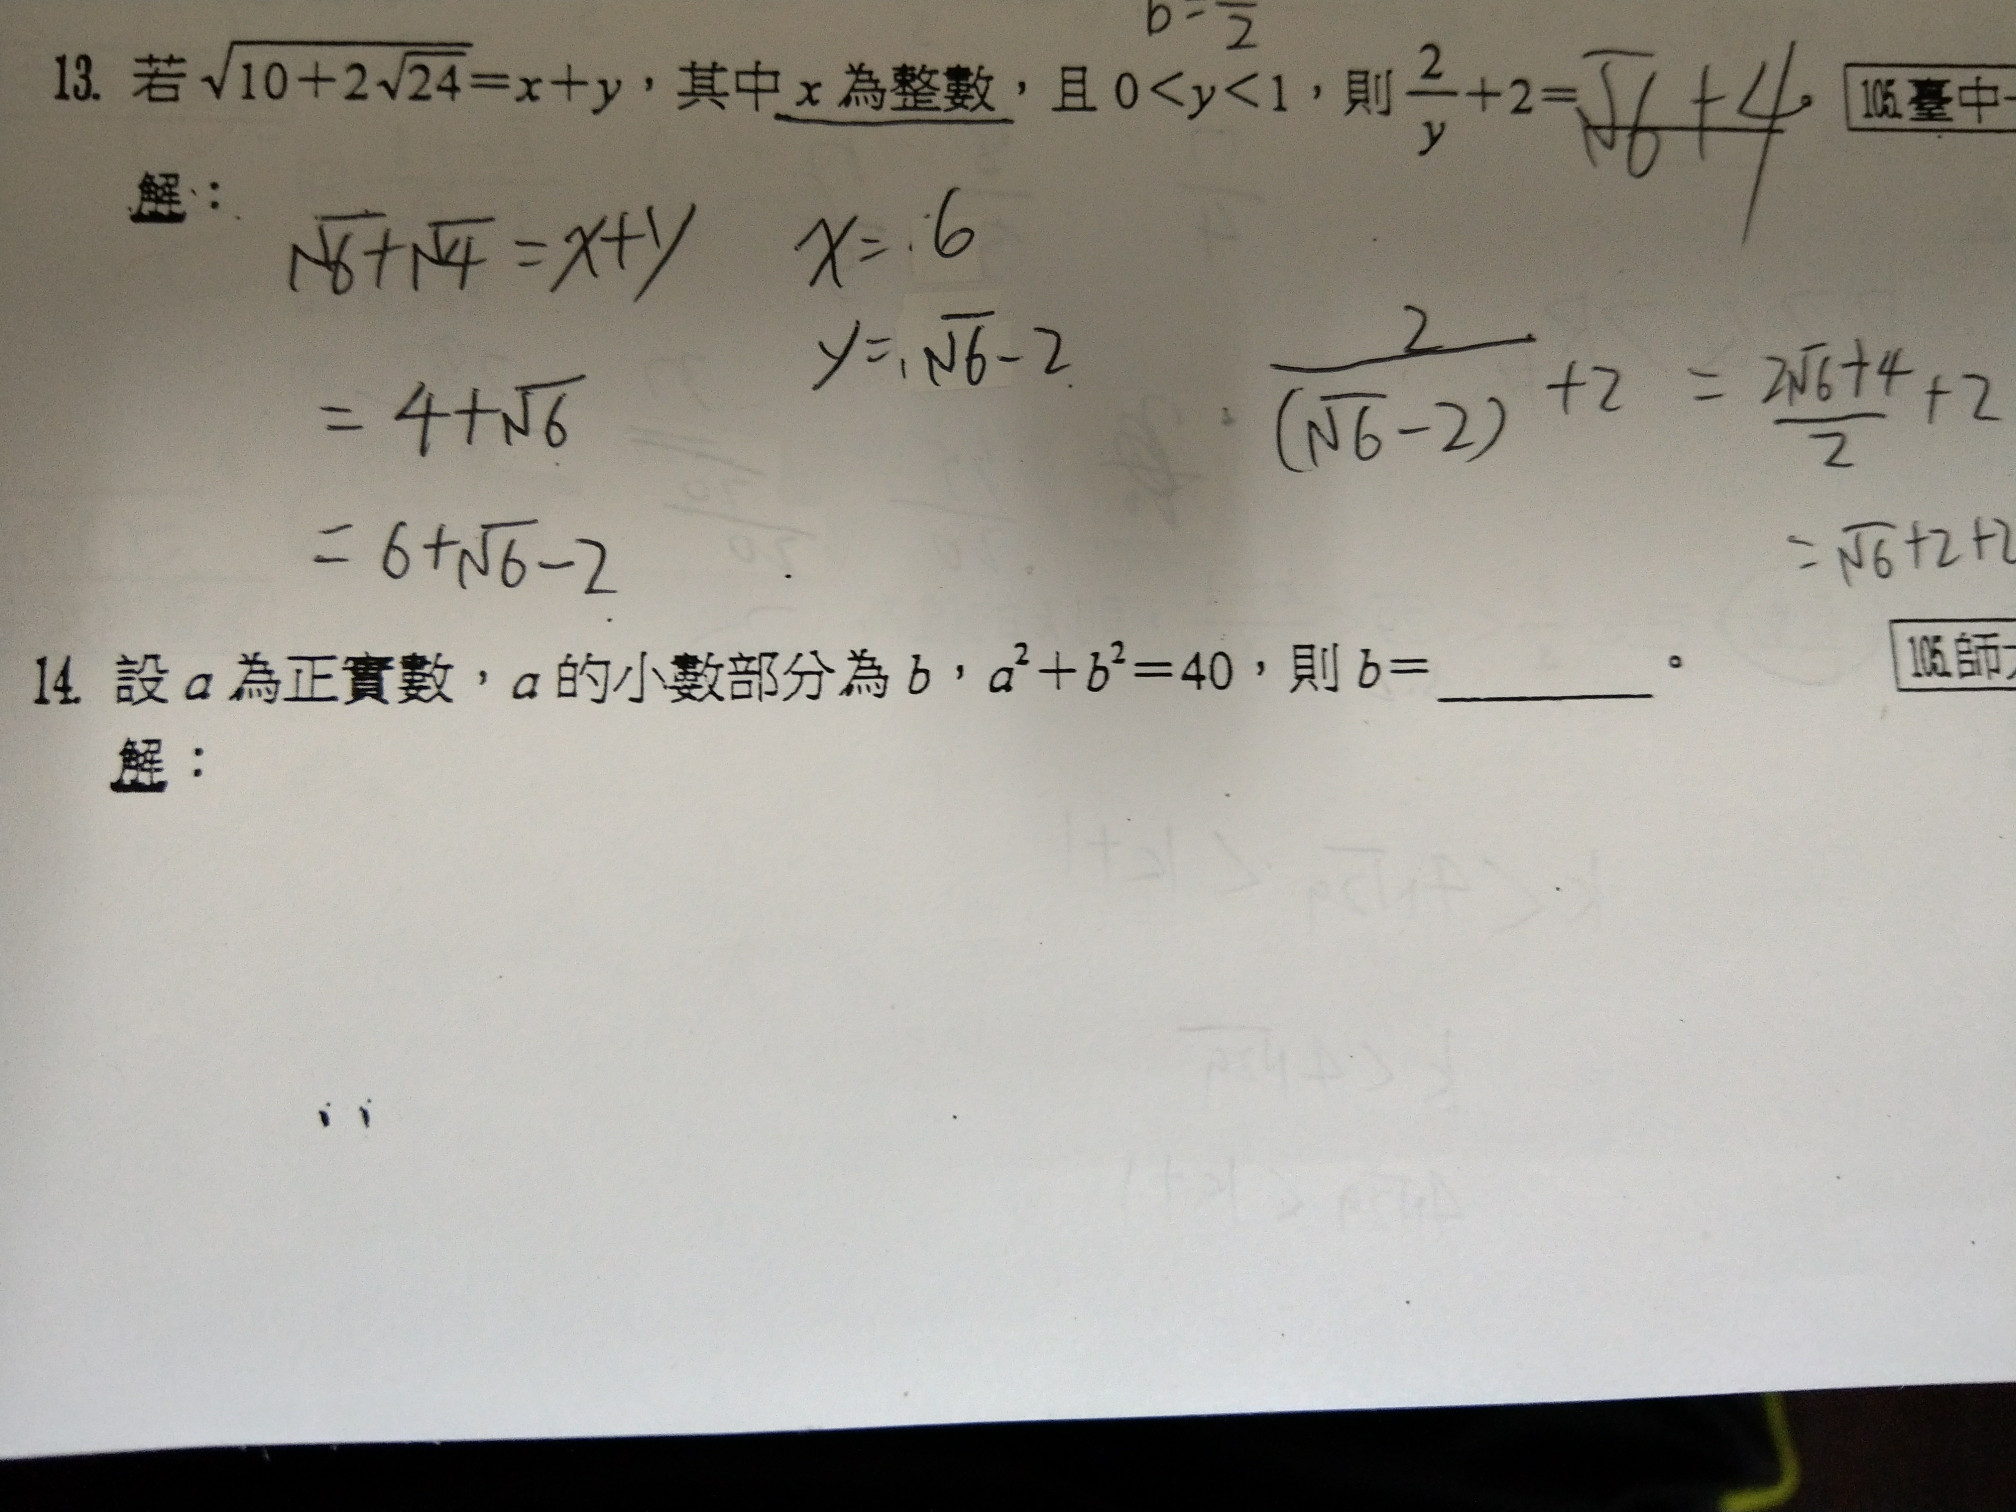 b=‾2
13. 若√10+2√24=x+y，其中x為整數，且0<y<1，則2/y+2=√6+4。 105.臺中一
解：
√6+√4=x+y x=6
y=√6-2
=4+√6 2/(√6-2)+2 = (2√6+4)/2+2
=6+√6-2 =√6+2+2
14. 設a為正實數，a的小數部分為b，a²+b²=40，則b=______。 105.師大
解：